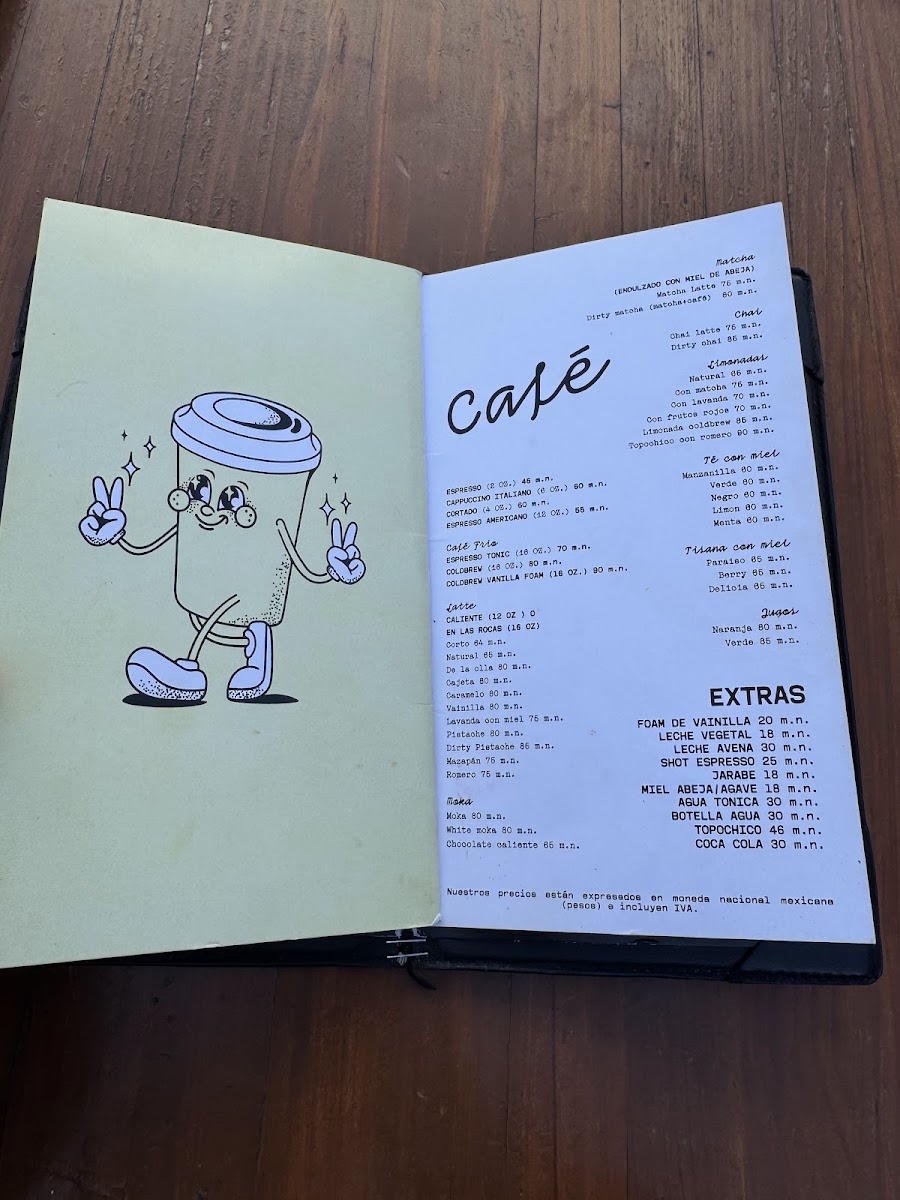 Café
ESPRESSO (2 OZ.) 45 m.n.
CAPPUCCINO ITALIANO (6 OZ.) 60 m.n.
CORTADO (4 OZ.) 60 m.n.
ESPRESSO AMERICANO (12 OZ.) 55 m.n.
Café Frio
ESPRESSO TONIC (16 OZ.) 70 m.n.
COLDBREW (16 OZ.) 80 m.n.
COLDBREW VANILLA FOAM (16 OZ.) 90 m.n.
Latte
CALIENTE (12 OZ ) O
EN LAS ROCAS (16 OZ)
Corto 64 m.n.
Natural 65 m.n.
De la olla 80 m.n.
Cajeta 80 m.n.
Caramelo 80 m.n.
Vainilla 80 m.n.
Lavanda con miel 75 m.n.
Pistache 80 m.n.
Dirty Pistache 85 m.n.
Mazapán 75 m.n.
Romero 75 m.n.
Moka
Moka 80 m.n.
White moka 80 m.n.
Chocolate caliente 65 m.n.
Matcha
(ENDULZADO CON MIEL DE ABEJA)
Matcha Latte 75 m.n.
Dirty matcha (matcha+café) 80 m.n.
Chai
Chai latte 75 m.n.
Dirty chai 85 m.n.
Limonadas
Natural 65 m.n.
Con matcha 75 m.n.
Con lavanda 70 m.n.
Con frutos rojos 70 m.n.
Limonada coldbrew 85 m.n.
Topochico con romero 90 m.n.
Té con miel
Manzanilla 60 m.n.
Verde 60 m.n.
Negro 60 m.n.
Limon 60 m.n.
Menta 60 m.n.
Tisana con miel
Paraiso 65 m.n.
Berry 65 m.n.
Delicia 65 m.n.
Jugos
Naranja 80 m.n.
Verde 85 m.n.
EXTRAS
FOAM DE VAINILLA 20 m.n.
LECHE VEGETAL 18 m.n.
LECHE AVENA 30 m.n.
SHOT ESPRESSO 25 m.n.
JARABE 18 m.n.
MIEL ABEJA/AGAVE 18 m.n.
AGUA TONICA 30 m.n.
BOTELLA AGUA 30 m.n.
TOPOCHICO 46 m.n.
COCA COLA 30 m.n.
Nuestros precios están expresados en moneda nacional mexicana
(pesos) e incluyen IVA.